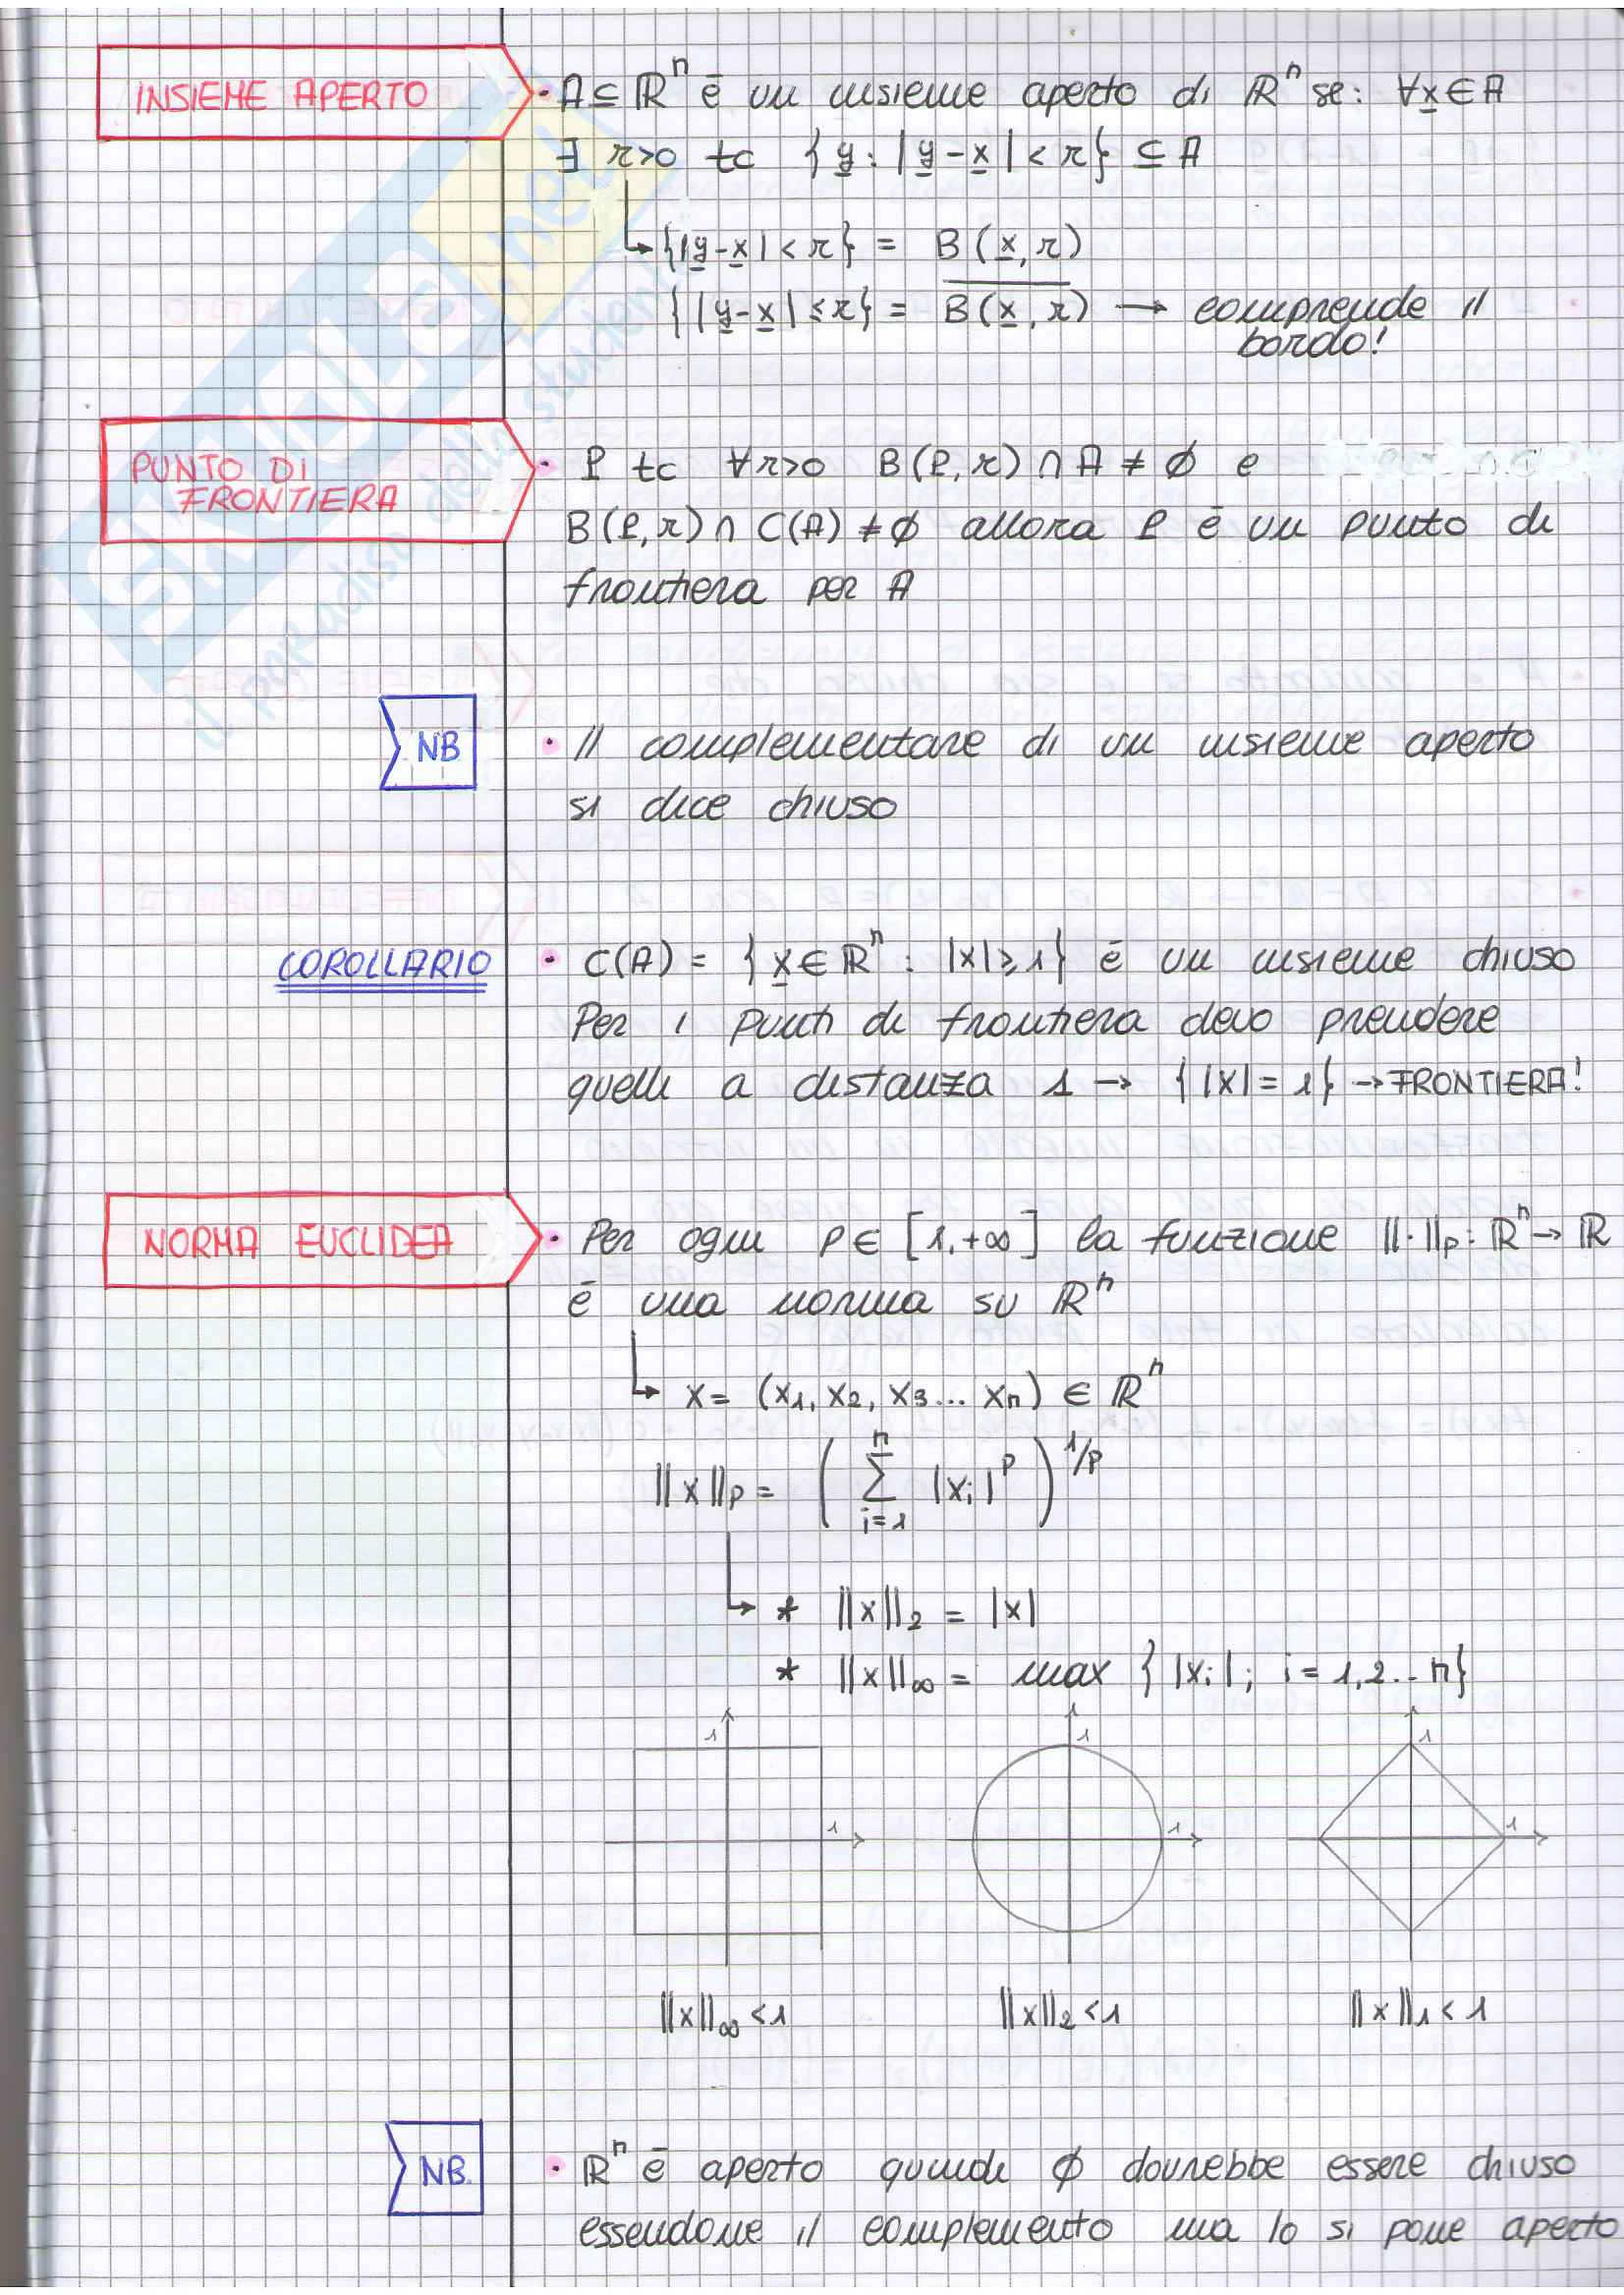 INSIEME APERTO
• A ⊆ ℝⁿ è un insieme aperto di ℝⁿ se: ∀x ∈ A
∃ r>0 tc {y : |y-x| < r} ⊆ A
↳ {|y-x| < r} = B(x,r)
{|y-x| ≤ r} = \overline{B(x,r)} → comprende il
bordo!
PUNTO DI
FRONTIERA
• P tc ∀r>0 B(P,r) ∩ A ≠ ∅ e
B(P,r) ∩ C(A) ≠ ∅ allora P è un punto di
frontiera per A
NB
• Il complementare di un insieme aperto
si dice chiuso
COROLLARIO
• C(A) = {x ∈ ℝⁿ : |x| ≥ 1} è un insieme chiuso
Per i punti di frontiera devo prendere
quelli a distanza 1 → {|x| = 1} → FRONTIERA!
NORMA EUCLIDEA
• Per ogni p ∈ [1,+∞] la funzione ||·||p : ℝⁿ → ℝ
è una norma su ℝⁿ
↳ x = (x₁, x₂, x₃... xₙ) ∈ ℝⁿ
||x||p = ( Σ_{i=1}^{n} |xᵢ|^p )^{1/p}
↳ * ||x||₂ = |x|
* ||x||∞ = max {|xᵢ| ; i = 1,2...n}
1 1 1
1 1 1
||x||∞ < 1 ||x||₂ < 1 ||x||₁ < 1
NB.
• ℝⁿ è aperto quindi ∅ dovrebbe essere chiuso
essendone il complemento ma lo si pone aperto
SKUOLA.net
il paradiso dello studente